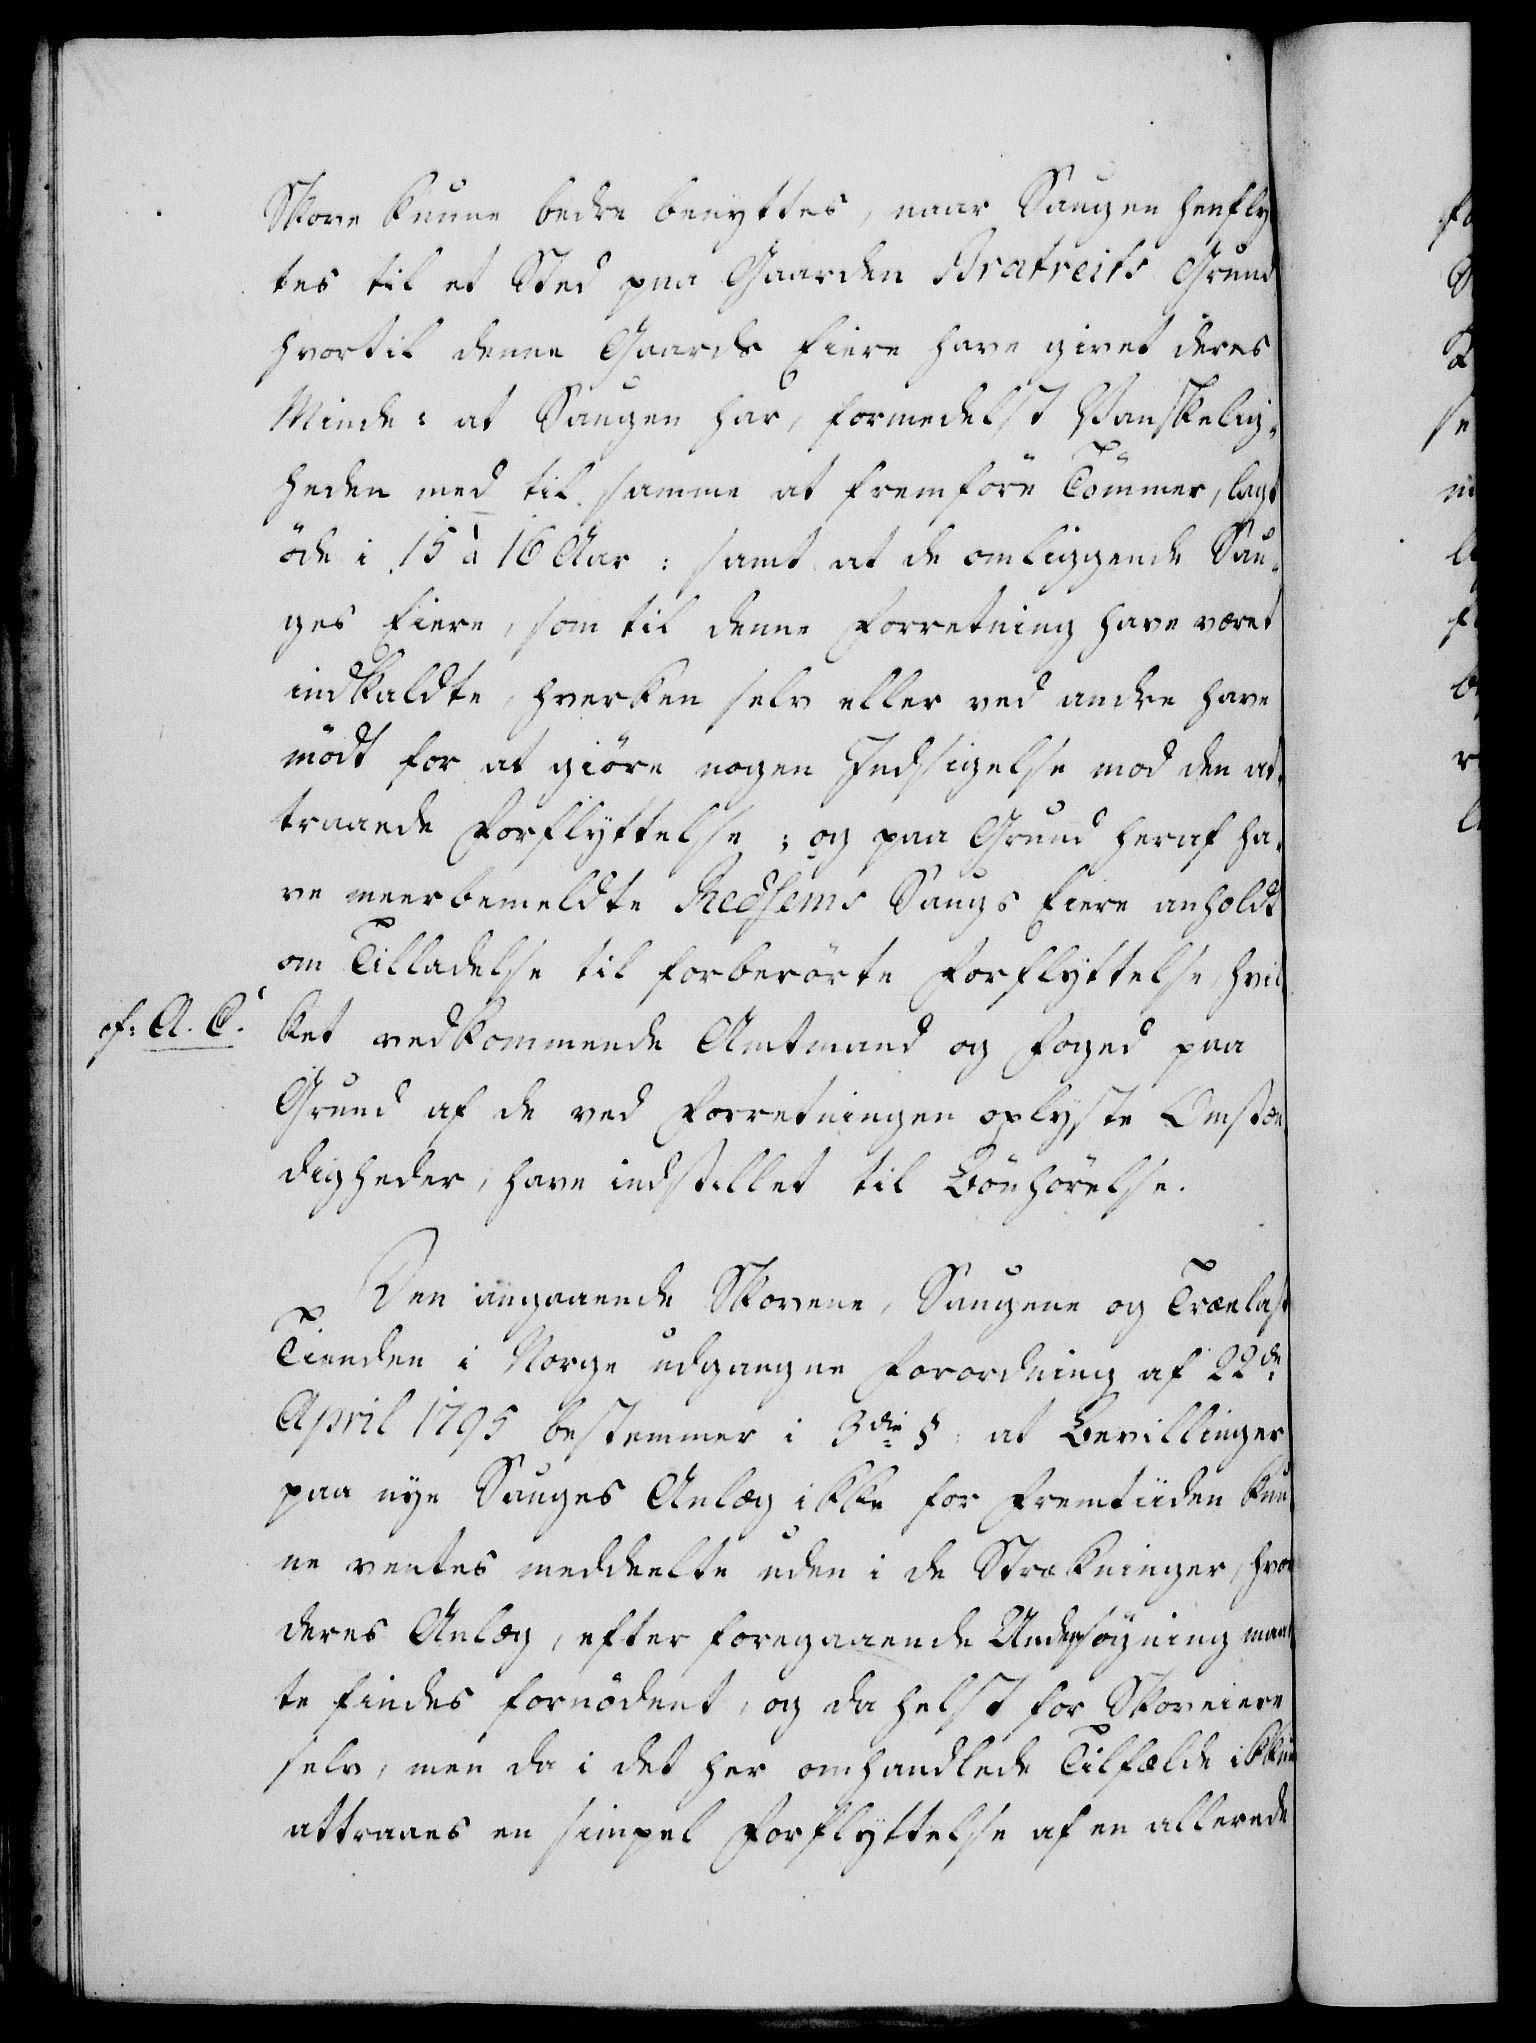 Skove kunne bedre benyttes, naar Saugen henfly
tes til et Sted paa Gaarden Bratreits Grund,
hvortil denne Gaards Eiere have givet deres
Minde: at Saugen har, formedelst Vanskelig-
heden med til samme at fremföre Tömmer, lagt
öde i 15 à 16 Aar: samt at de omliggende Sau-
ges Eiere, som til denne Forretning have været
indkaldte, hverken selv eller ved andre have
mödt for at giöre nogen Indsigelse mod den at-
traaede Forflyttelse; og paa Grund heraf ha-
ve meerbemeldte Redhems Saugs Eiere anholdt
om Tilladelse til forberörte Forflyttelse, hvil
cf: A. C.
ket vedkommende Amtmand og Foged paa
Grund af de ved Forretningen oplyste Omstæn
digheder, have indstillet til Bönhörelse.
Den angaaende Skovene, Saugene og Trælast
Tienden i Norge udgangne Forordning af 22de
April 1795 bestemmer i 3die §: at Bevillinger
paa nye Sauges Anlæg ikke for Fremtiiden kun
ne ventes meddeelte uden i de Strækninger, hvor
deres Anlæg, efter foregaaende Undersögning maat
te findes fornödent, og da helst for Skoveiere
selv, men da i det her omhandlede Tilfælde ikkun
attraaes en simpel Forflyttelse af en allerede